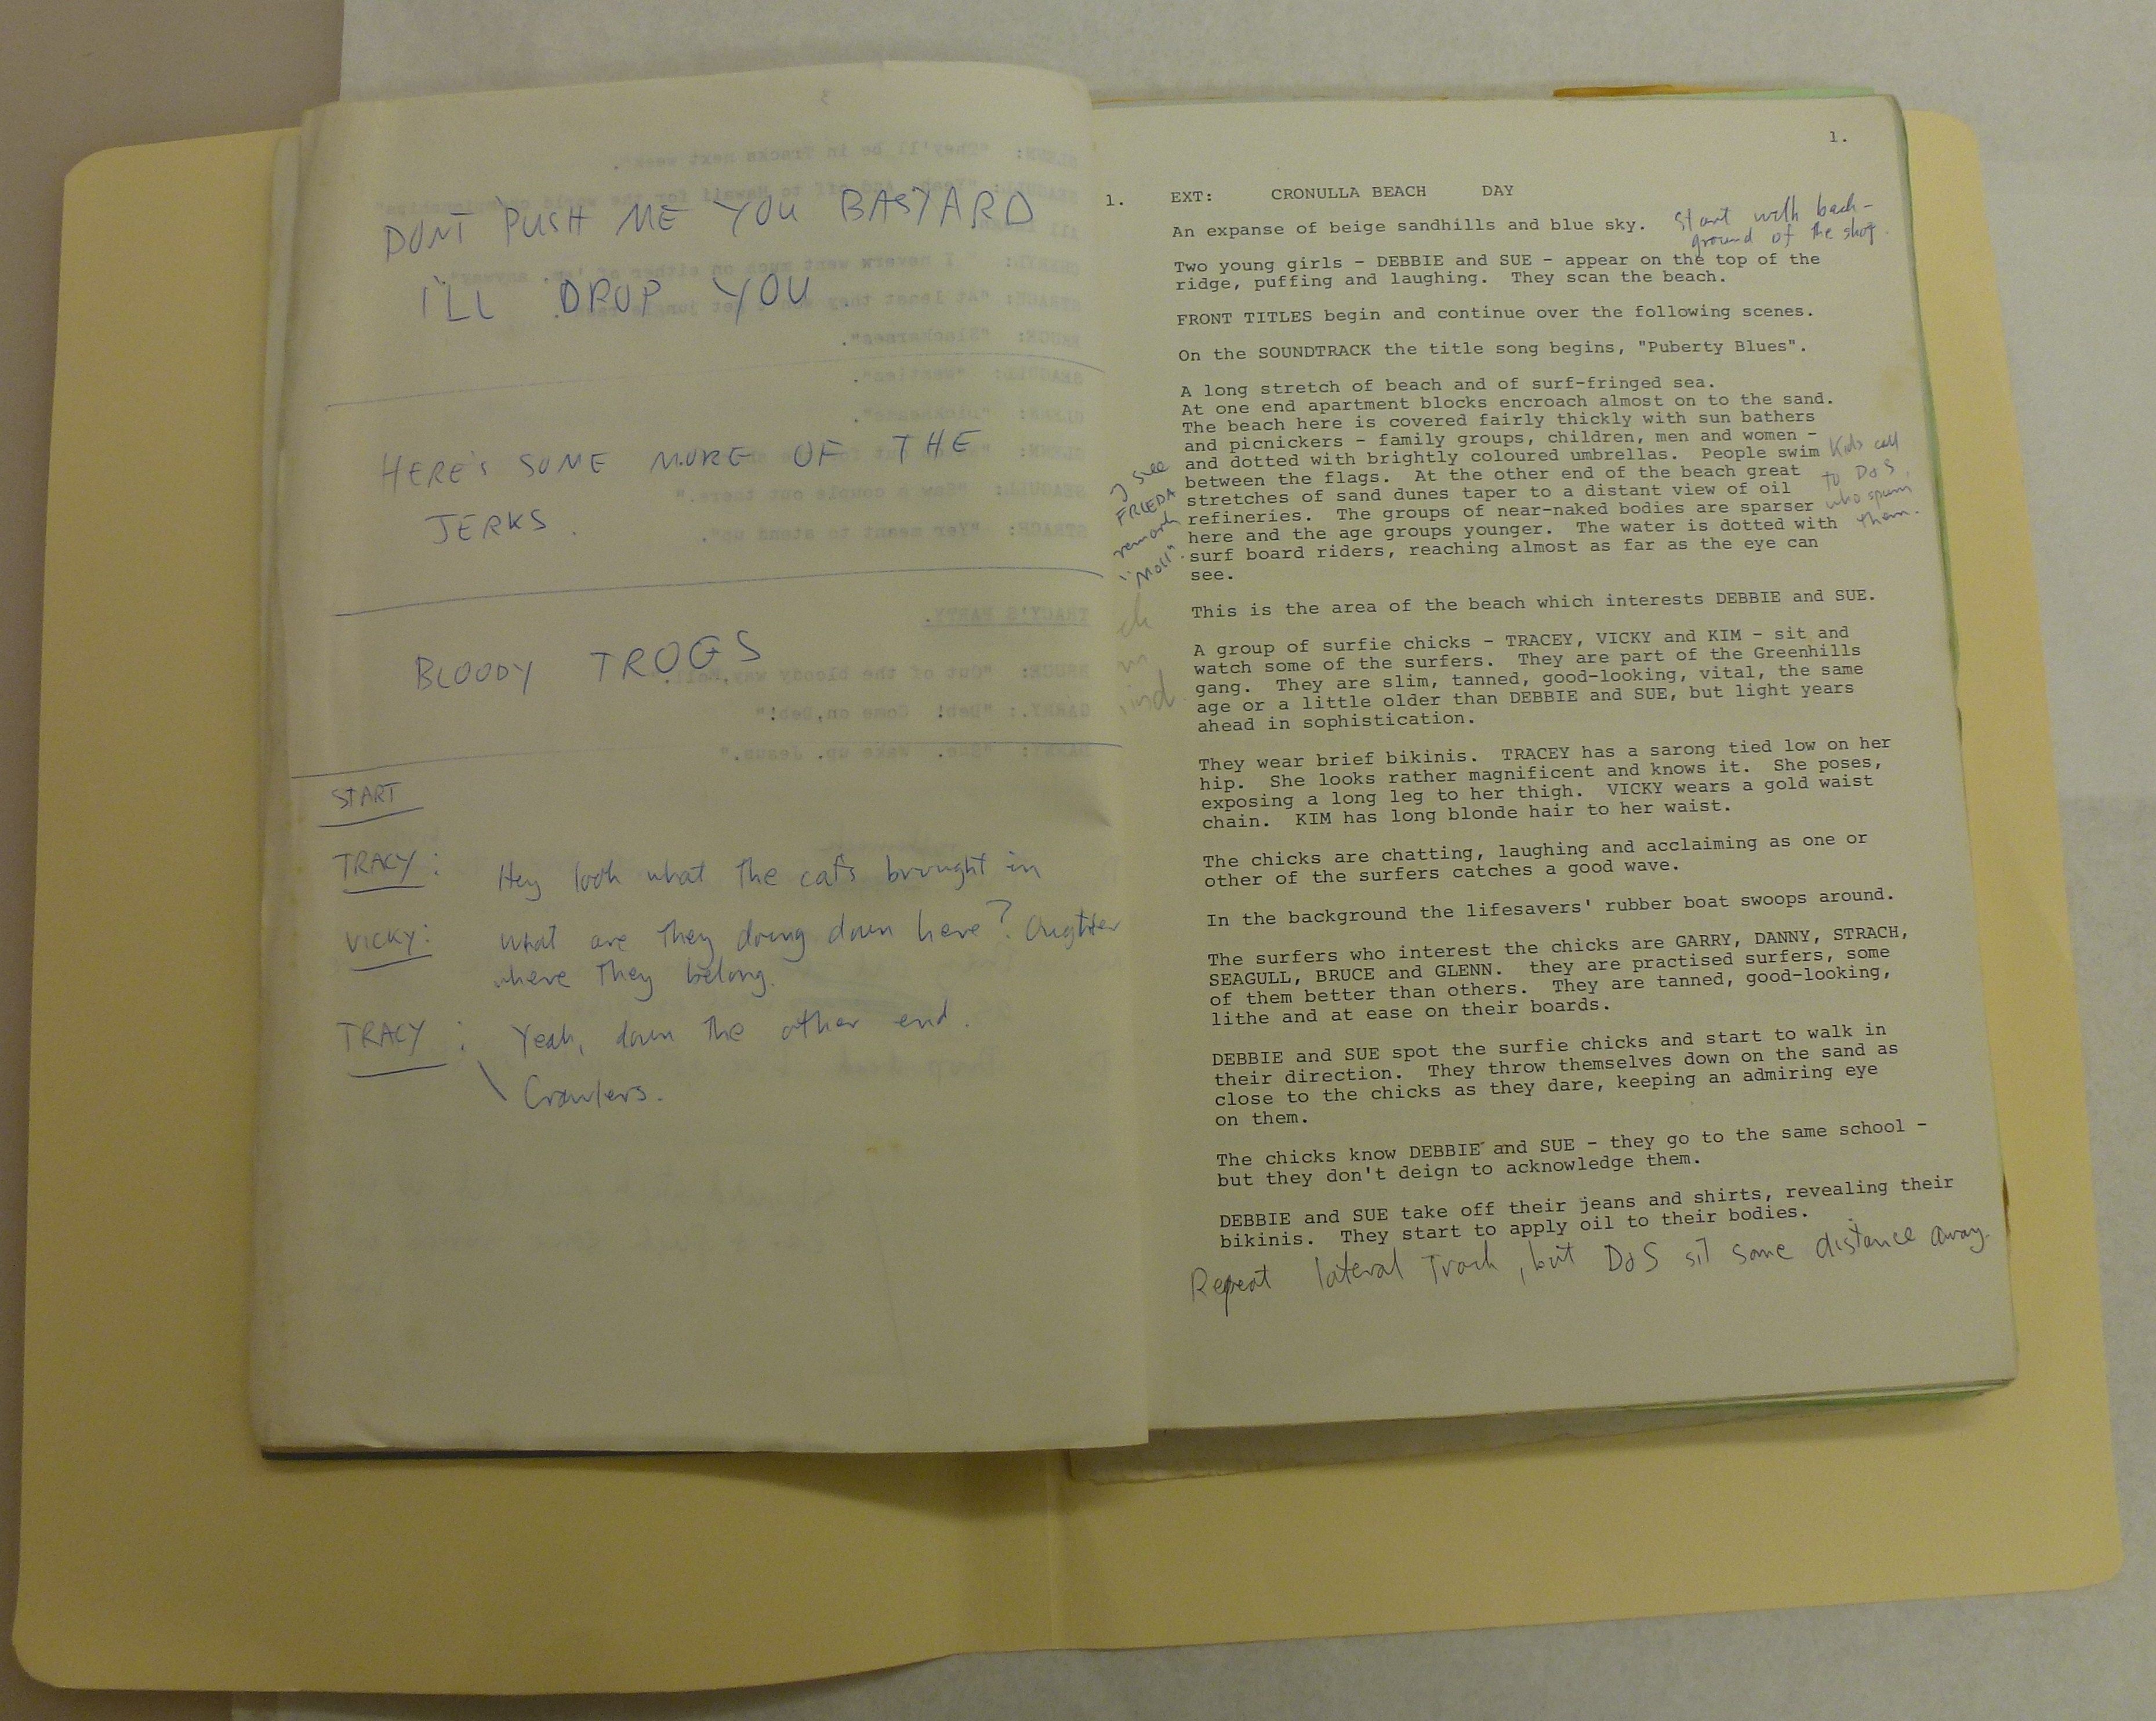 DONT PUSH ME YOU BASTARD
I'LL DROP YOU
HERE'S SOME MORE OF THE
JERKS.
BLOODY TROGS
START
TRACY: Hey look what the cat's brought in
VICKY: What are they doing down here? Oughter
where they belong.
TRACY: Yeah, down the other end.
Crawlers.
1.
1. EXT: CRONULLA BEACH DAY
An expanse of beige sandhills and blue sky.
Start with back-
ground of the shop.
Two young girls - DEBBIE and SUE - appear on the top of the
ridge, puffing and laughing. They scan the beach.
FRONT TITLES begin and continue over the following scenes.
On the SOUNDTRACK the title song begins, "Puberty Blues".
A long stretch of beach and of surf-fringed sea.
At one end apartment blocks encroach almost on to the sand.
The beach here is covered fairly thickly with sun bathers
and picnickers - family groups, children, men and women -
and dotted with brightly coloured umbrellas. People swim
between the flags. At the other end of the beach great
stretches of sand dunes taper to a distant view of oil
refineries. The groups of near-naked bodies are sparser
here and the age groups younger. The water is dotted with
surf board riders, reaching almost as far as the eye can
see.
Kids call
to D&S,
who spurn
them.
see
FRIEDA
remark
"Moll".
This is the area of the beach which interests DEBBIE and SUE.
A group of surfie chicks - TRACEY, VICKY and KIM - sit and
watch some of the surfers. They are part of the Greenhills
gang. They are slim, tanned, good-looking, vital, the same
age or a little older than DEBBIE and SUE, but light years
ahead in sophistication.
They wear brief bikinis. TRACEY has a sarong tied low on her
hip. She looks rather magnificent and knows it. She poses,
exposing a long leg to her thigh. VICKY wears a gold waist
chain. KIM has long blonde hair to her waist.
The chicks are chatting, laughing and acclaiming as one or
other of the surfers catches a good wave.
In the background the lifesavers' rubber boat swoops around.
The surfers who interest the chicks are GARRY, DANNY, STRACH,
SEAGULL, BRUCE and GLENN. they are practised surfers, some
of them better than others. They are tanned, good-looking,
lithe and at ease on their boards.
DEBBIE and SUE spot the surfie chicks and start to walk in
their direction. They throw themselves down on the sand as
close to the chicks as they dare, keeping an admiring eye
on them.
The chicks know DEBBIE and SUE - they go to the same school -
but they don't deign to acknowledge them.
DEBBIE and SUE take off their jeans and shirts, revealing their
bikinis. They start to apply oil to their bodies.
Repeat lateral Track, but D&S sit some distance away.